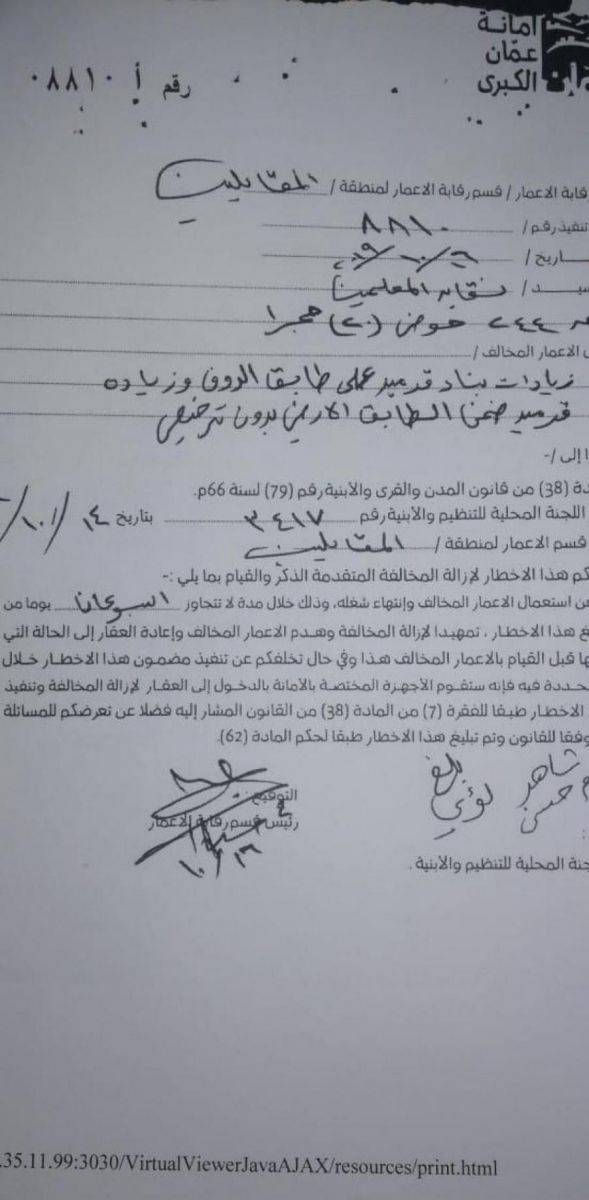 أمانة
عمّان
الكبرى
رقم أ ٠٨٨١٠
قسم رقابة الاعمار لمنطقة / المقابلين
تنفيذ رقم / ٨٨١٠
نقابة المعلمين
٢٤٤ حوض (٢٠)
الاعمار المخالف /
زيادات بناء قرميد على طابق الروف وزيادة
قرميد ضمن الطابق الارضي بدون ترخيص
(38) من قانون المدن والقرى والأبنية رقم (79) لسنة 66م.
اللجنة المحلية للتنظيم والأبنية رقم ٣٤١٧ بتاريخ ١٤/١٠/
قسم الاعمار لمنطقة / المقابلين
هذا الاخطار لإزالة المخالفة المتقدمة الذكر والقيام بما يلي :-
استعمال الاعمار المخالف وإنتهاء شغله، وذلك خلال مدة لا تتجاوز اسبوعان يوما من
هذا الاخطار ، تمهيدا لإزالة المخالفة وهدم الاعمار المخالف وإعادة العقار إلى الحالة التي
قبل القيام بالاعمار المخالف هذا وفي حال تخلفكم عن تنفيذ مضمون هذا الاخطار خلال
فيه فإنه ستقوم الأجهزة المختصة بالأمانة بالدخول إلى العقار لإزالة المخالفة وتنفيذ
الاخطار طبقا للفقرة (7) من المادة (38) من القانون المشار إليه فضلا عن تعرضكم للمسائلة
وفقا للقانون وتم تبليغ هذا الاخطار طبقا لحكم المادة (62).
شاهد
لؤي
التوقيع :
رئيس قسم رقابة الاعمار
المحلية للتنظيم والأبنية .
.35.11.99:3030/VirtualViewerJavaAJAX/resources/print.html